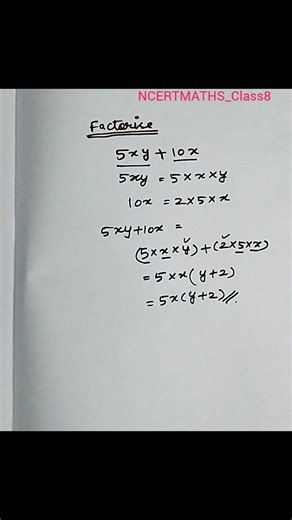 NCERTMATHS_Class8
Factorise
5xy + 10x
5xy = 5 × x × y
10x = 2 × 5 × x
5xy + 10x =
(5 × x × y) + (2 × 5 × x)
= 5 × x (y + 2)
= 5x (y + 2) //